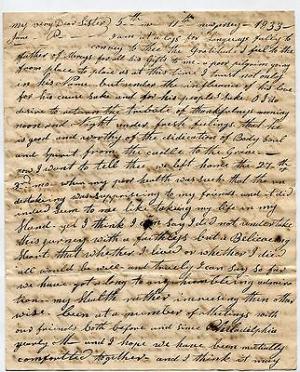 my very Dear Sister 5th m 11th 1833
June P I am at loss for language fully to
convey to thee the Gratitude I feel to the
father of Mercys for all his Gifts to me a poor pilgrim going
from place to place as at this time I trust not only
in his Name but under the influence of his love
for his cause sake and for his people Sake I do
desire to return the tribute of thanksgiving morning
noon and Night under feeling that he
is good and worthy of the dedication of Body Soul
and Spirit from the cradle to the Grave
now I want to tell thee we left home the 22
2nd mo when my poor health was such that the
undertaking was surprising to my friends and it did
indeed seem to me like taking my life in my
Hand yet I think I can Say I did not undertake
this journey with a faithless but a Believing
Heart that whether I lived or whether I died
all would be well and truly I can Say So far
we have got along to my humbling admira
tion my Health rather increasing then other
wise been at a number of Meetings with
our friends both before and Since Philadelphia
yearly M and I hope we have been mutually
comforted together and I think it may